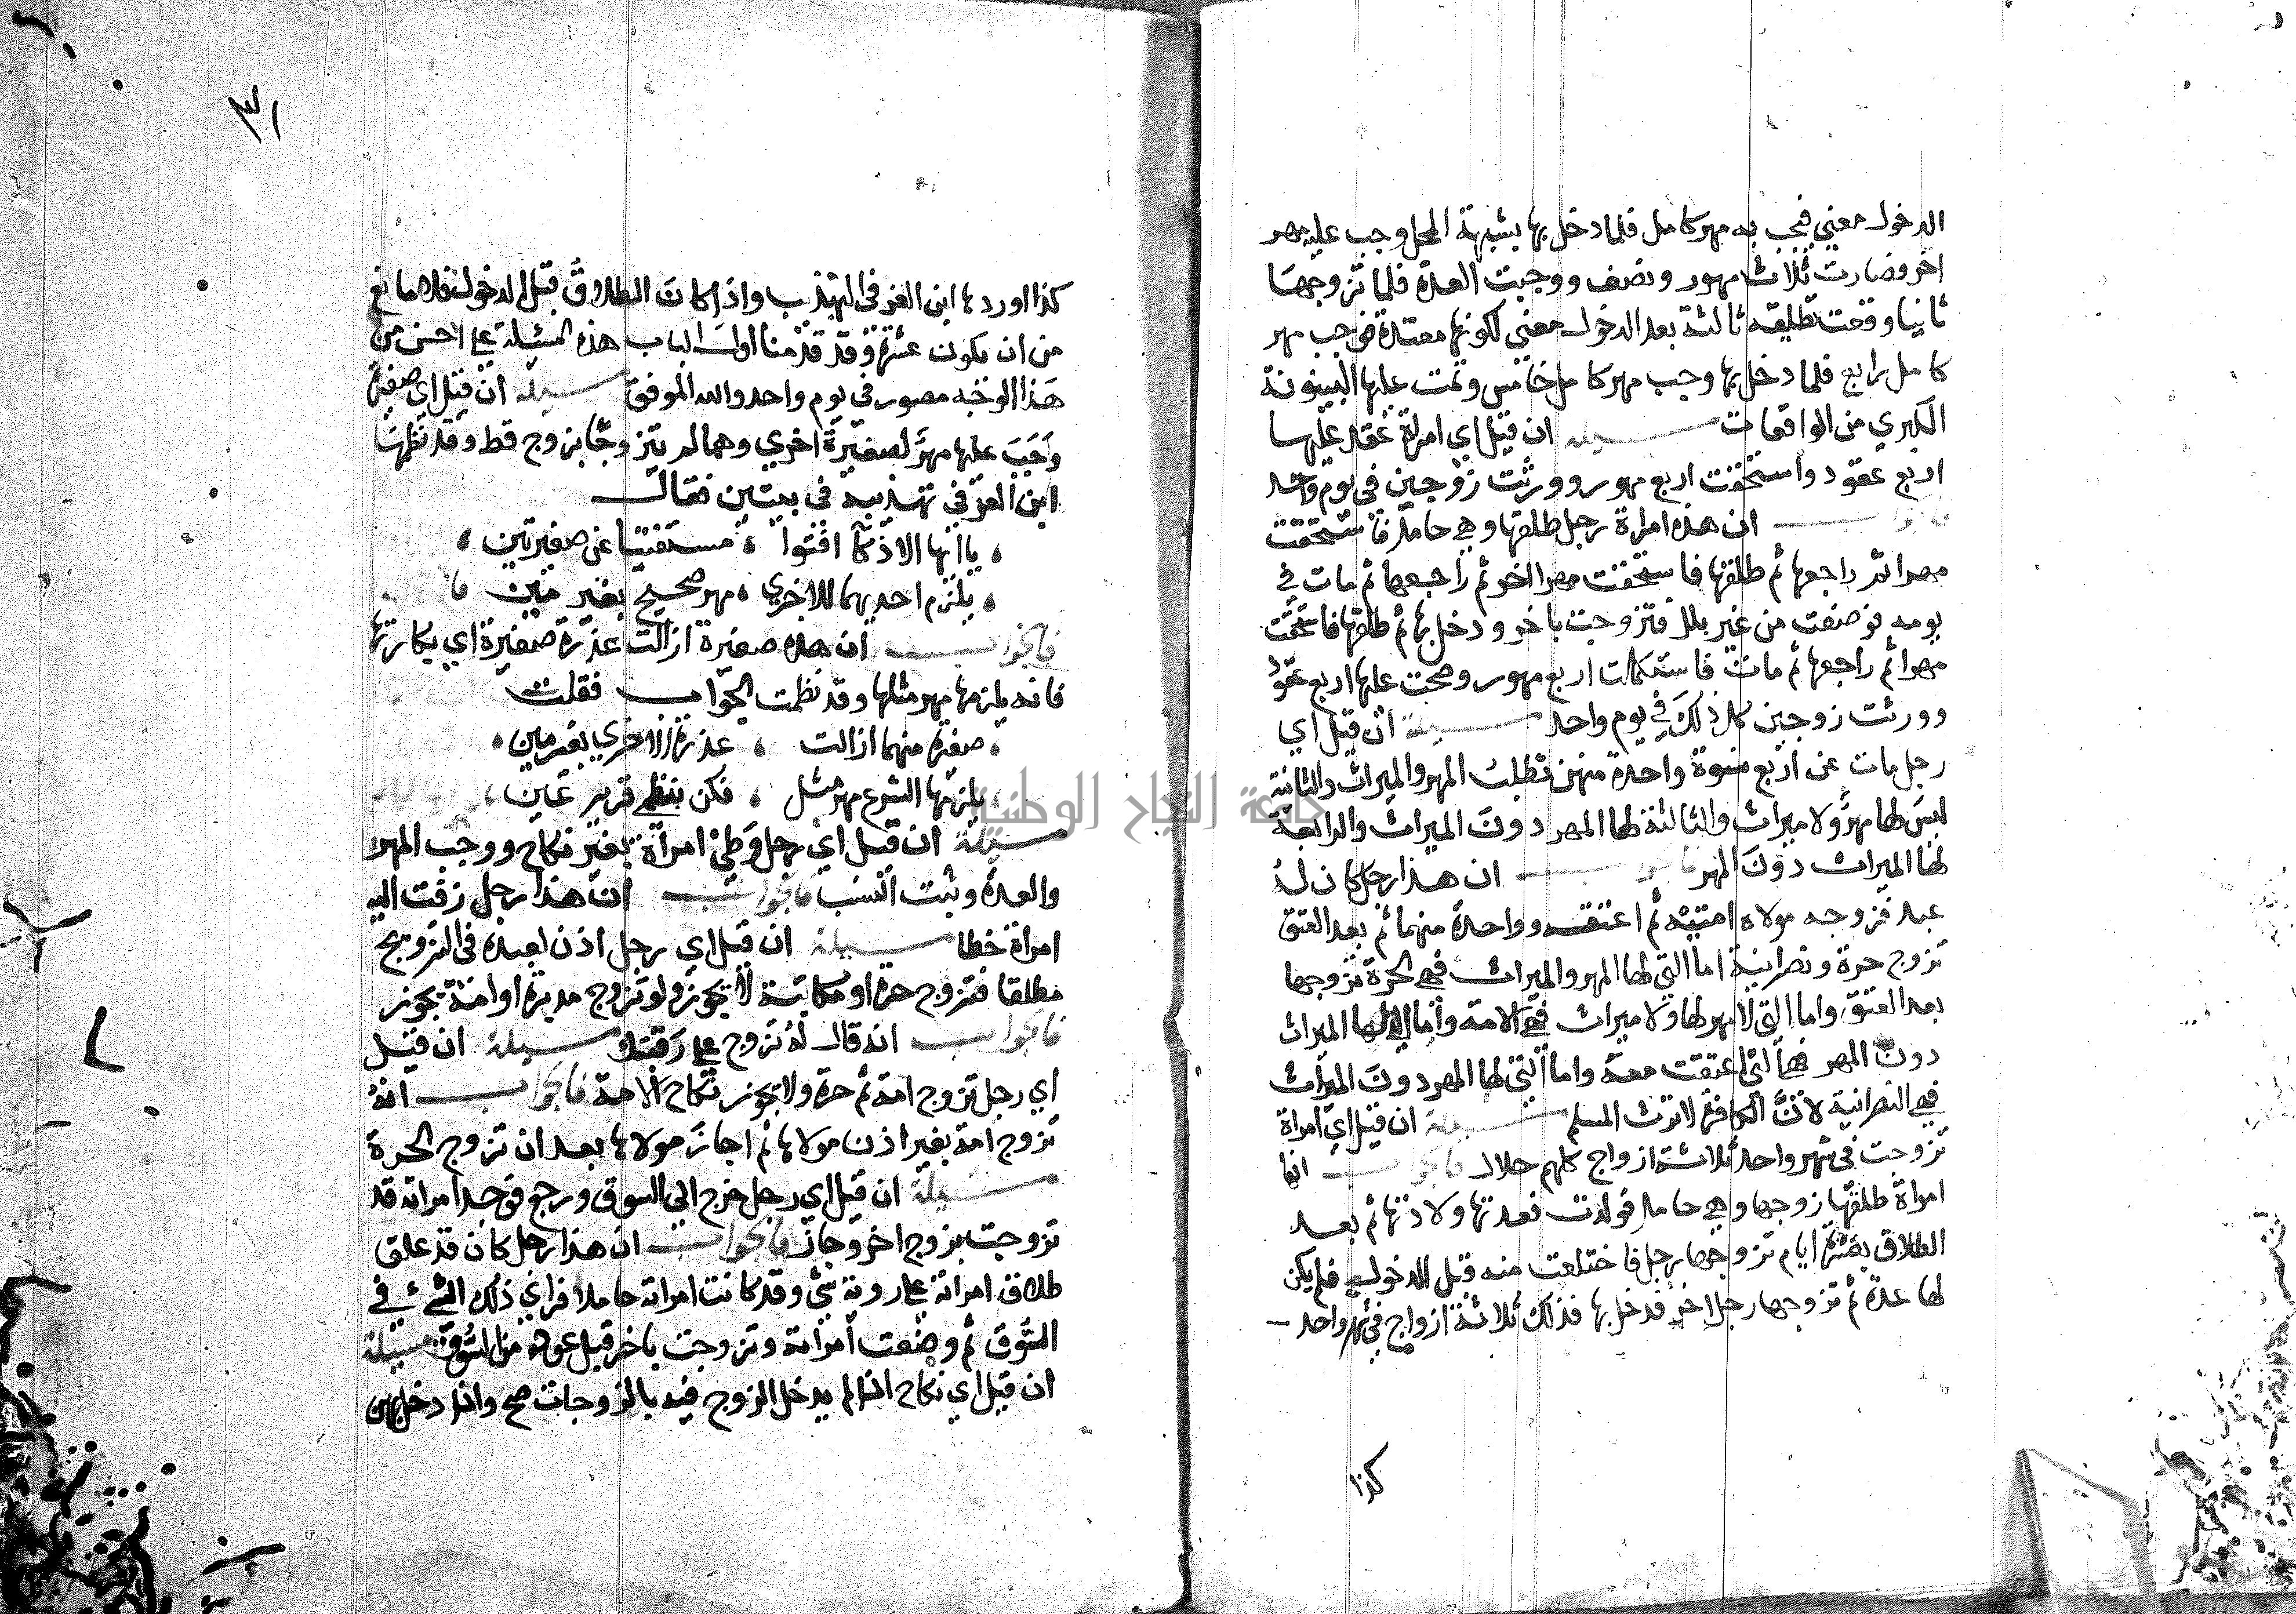 الدخول معنى فيجب به مهر كامل فلما دخل بها بشبهة المحل وجب عليه مهر
اخر فصارت ثلاث مهور ونصف ووجبت العدة فلما تزوجها
ثانيا وقعت تطليقة ثالثة بعد الدخول معنى لكونها معتدة فوجب مهر
كامل رابع فلما دخل بها وجب مهر كامل خامس وتمت عليها البينونة
الكبري من الواقعات مسيلة ان قيل اي امراة عقد عليها
اربع عقود واستحقت اربع مهور وورثت زوجين في يوم واحد
فالجواب ان هذه امراة رجل طلقها وهي حامل فاستحقت
مهرا ثم راجعها ثم طلقها فاستحقت مهرا اخر ثم راجعها ثم مات في
يومه فوضعت من غير بلل فتزوجت باخر ودخل بها ثم طلقها فاستحقت
مهرا ثم راجعها ثم مات فاستكملت اربع مهور وصحت عليها اربع عقود
وورثت زوجين كل ذلك في يوم واحد مسيلة ان قيل اي
رجل مات عن اربع نسوة واحدة منهن تطلب المهر والميراث والثانية
ليس لها مهر ولا ميراث والثالثة لها المهر دون الميراث والرابعة
لها الميراث دون المهر فالجواب ان هذا رجل كان له
عبد فزوجه مولاه امتيه ثم اعتقه وواحدة منهما ثم بعد العتق
تزوج حرة ونصرانية اما التي لها المهر والميراث فهي الحرة تزوجها
بعد العتق واما التي لا مهر لها ولا ميراث فهي الامة واما التي لها الميراث
دون المهر فهي التي اعتقت معه واما التي لها المهر دون الميراث
فهي النصرانية لان الكافر لا ترث المسلم مسيلة ان قيل اي امراة
تزوجت في شهر واحد ثلاثة ازواج كلهم حلال فالجواب انها
امراة طلقها زوجها وهي حامل فولدت فعدتها ولادتها ثم بعد
الطلاق بعشرة ايام تزوجها رجل فاختلعت منه قبل الدخول فلم يكن
لها عدة ثم تزوجها رجل اخر فدخل بها فذلك ثلاثة ازواج في شهر واحد
كذا
كذا اوردها ابن العز في التهذيب واذا كانت الطلاق قبل الدخول فلا مانع
من ان يكون عشرة وقد قدمنا اول الباب هذه المسئلة علي احسن من
هذا الوجه مصور في يوم واحد والله الموفق مسيلة ان قيل اي صغيرة
وجب عليها مهر لصغيرة اخري وهما لم يتزوجا بزوج قط وقد نظمها
ابن العز في تهذيبه في بيتين فقال
يا ايها الاذكيا افتوا مستفتيا عن صغيرتين
يلزم احديهما للاخري مهر صحيح بغير مين
فالجواب ان هذه صغيرة ازالت عذرة صغيرة اي بكارتها
فانه يلزمها مهر مثلها وقد نظمت الجواب فقلت
صغيرة منهما ازالت عذرة الاخري بغير مين
يلزمها الشرع مهر مثل فكن بنظمي قرير عين
مسيلة ان قيل اي رجل وطئ امراة بغير نكاح ووجب المهر
والعدة وثبت النسب فالجواب ان هذا رجل زفت اليه
امراة خطا مسيلة ان قيل اي رجل اذن لعبده في التزويج
مطلقا فتزوج حرة او مكاتبة لا يجوز ولو تزوج مدبرة او امة يجوز
فالجواب انه قال له تزوج علي رقبتك مسيلة ان قيل
اي رجل تزوج امة ثم حرة ولا يجوز نكاح الامة فالجواب انه
تزوج امة بغير اذن مولاها ثم اجاز مولاها بعد ان تزوج الحرة
مسيلة ان قيل اي رجل خرج الي السوق ورجع فوجد امراته قد
تزوجت بزوج اخر وجاز فالجواب ان هذا رجل كان قد علق
طلاق امراته علي روية شئ وقد كانت امراته حاملا فراي ذلك الشئ في
السوق ثم وضعت امراته وتزوجت باخر قبل عوده من السوق مسيلة
ان قيل اي نكاح اذا لم يدخل الزوج فيه بالزوجات صح واذا دخل بهن
جامعة النجاح الوطنية